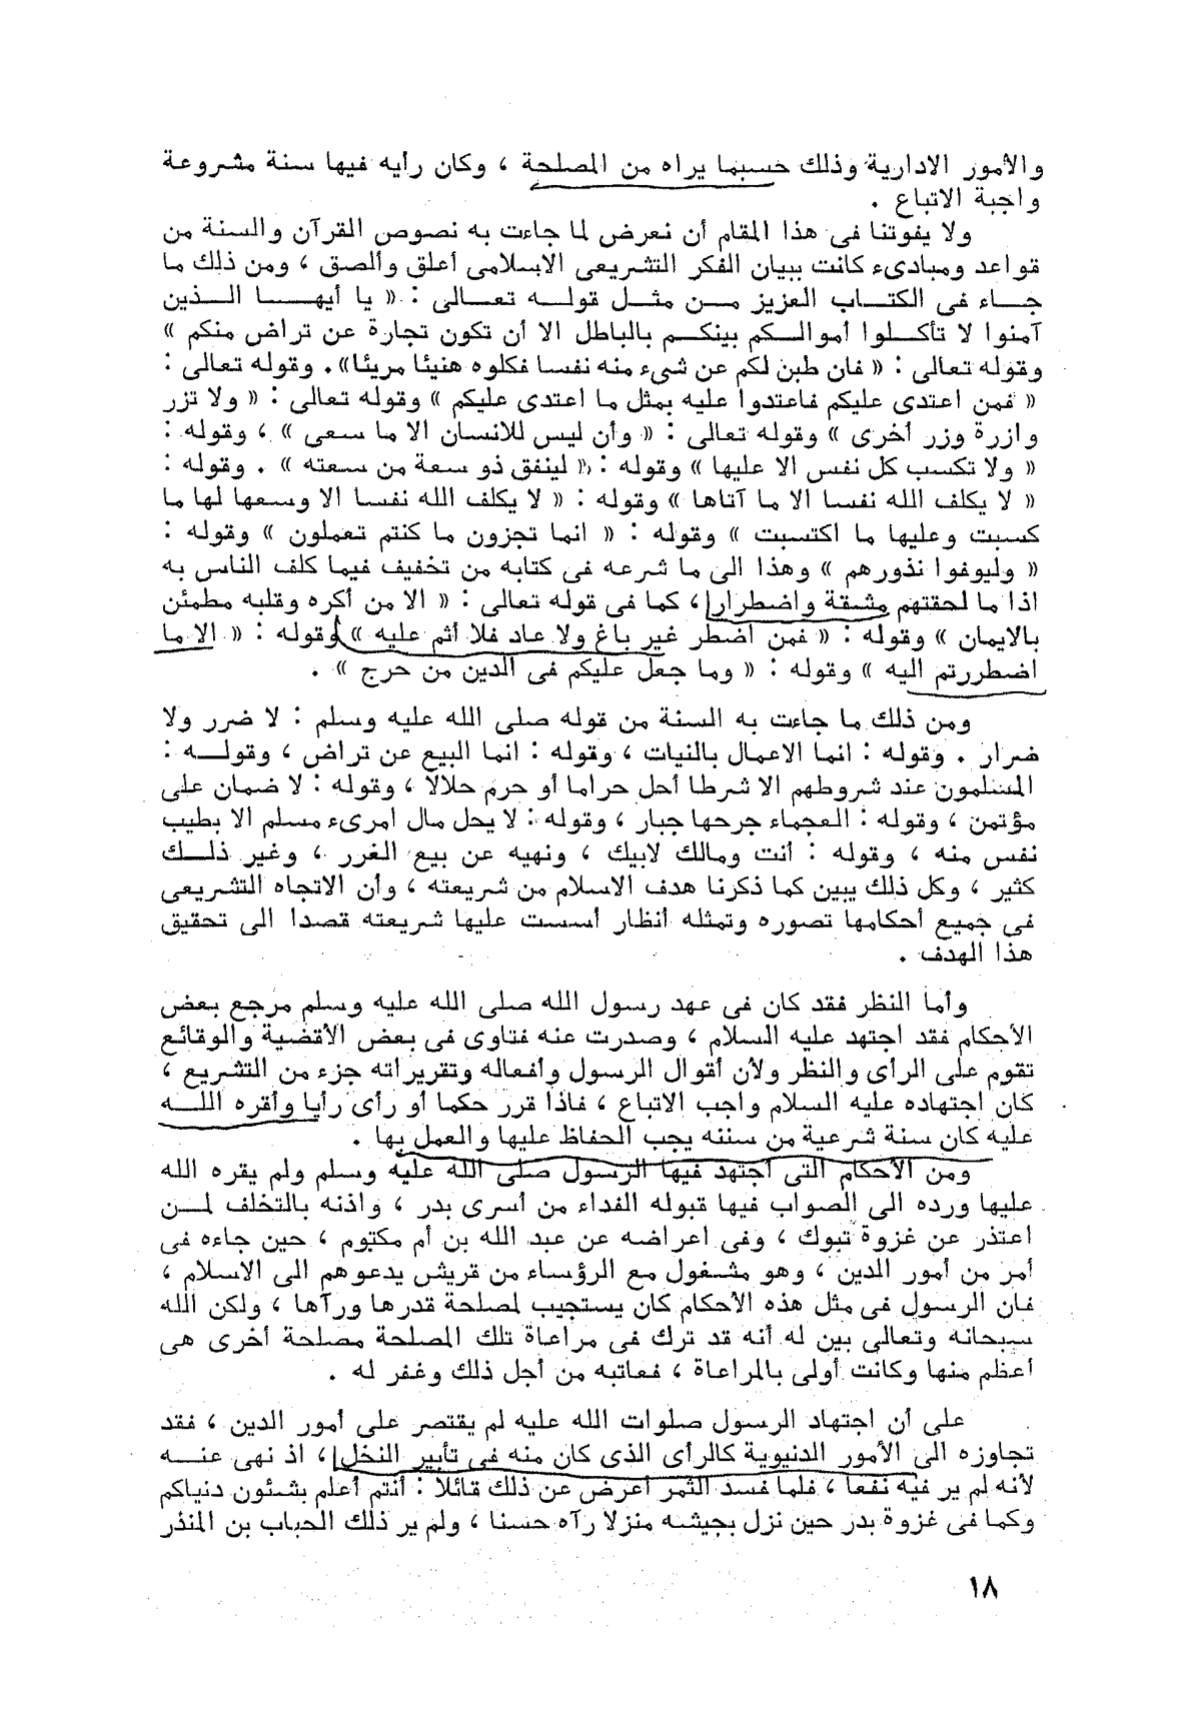 والأمور الادارية وذلك حسبما يراه من المصلحة ، وكان رأيه فيها سنة مشروعة
واجبة الاتباع .
ولا يفوتنا فى هذا المقام أن نعرض لما جاءت به نصوص القرآن والسنة من
قواعد ومبادىء كانت ببيان الفكر التشريعى الاسلامى أعلق وألصق ، ومن ذلك ما
جاء فى الكتاب العزيز من مثل قوله تعالى : « يا أيها الذين
آمنوا لا تأكلوا أموالكم بينكم بالباطل الا أن تكون تجارة عن تراض منكم »
وقوله تعالى : « فان طبن لكم عن شىء منه نفسا فكلوه هنيئا مريئا» . وقوله تعالى :
« فمن اعتدى عليكم فاعتدوا عليه بمثل ما اعتدى عليكم » وقوله تعالى : « ولا تزر
وازرة وزر أخرى » وقوله تعالى : « وأن ليس للانسان الا ما سعى » ، وقوله :
« ولا تكسب كل نفس الا عليها » وقوله : « لينفق ذو سعة من سعته » . وقوله :
« لا يكلف الله نفسا الا ما آتاها » وقوله : « لا يكلف الله نفسا الا وسعها لها ما
كسبت وعليها ما اكتسبت » وقوله : « انما تجزون ما كنتم تعملون » وقوله :
« وليوفوا نذورهم » وهذا الى ما شرعه فى كتابه من تخفيف فيما كلف الناس به
اذا ما لحقتهم مشقة واضطرار ، كما فى قوله تعالى : « الا من أكره وقلبه مطمئن
بالايمان » وقوله : « فمن اضطر غير باغ ولا عاد فلا أثم عليه » وقوله : « الا ما
اضطررتم اليه » وقوله : « وما جعل عليكم فى الدين من حرج » .
ومن ذلك ما جاءت به السنة من قوله صلى الله عليه وسلم : لا ضرر ولا
ضرار . وقوله : انما الاعمال بالنيات ، وقوله : انما البيع عن تراض ، وقوله :
المسلمون عند شروطهم الا شرطا أحل حراما أو حرم حلالا ، وقوله : لا ضمان على
مؤتمن ، وقوله : العجماء جرحها جبار ، وقوله : لا يحل مال امرىء مسلم الا بطيب
نفس منه ، وقوله : أنت ومالك لابيك ، ونهيه عن بيع الغرر ، وغير ذلك
كثير ، وكل ذلك يبين كما ذكرنا هدف الاسلام من شريعته ، وأن الاتجاه التشريعى
فى جميع أحكامها تصوره وتمثله أنظار أسست عليها شريعته قصدا الى تحقيق
هذا الهدف .
وأما النظر فقد كان فى عهد رسول الله صلى الله عليه وسلم مرجع بعض
الأحكام فقد اجتهد عليه السلام ، وصدرت عنه فتاوى فى بعض الأقضية والوقائع
تقوم على الرأى والنظر ولأن أقوال الرسول وأفعاله وتقريراته جزء من التشريع ،
كان اجتهاده عليه السلام واجب الاتباع ، فاذا قرر حكما أو رأى رأيا وأقره الله
عليه كان سنة شرعية من سننه يجب الحفاظ عليها والعمل بها .
ومن الأحكام التى اجتهد فيها الرسول صلى الله عليه وسلم ولم يقره الله
عليها ورده الى الصواب فيها قبوله الفداء من أسرى بدر ، واذنه بالتخلف لمن
اعتذر عن غزوة تبوك ، وفى اعراضه عن عبد الله بن أم مكتوم ، حين جاءه فى
أمر من أمور الدين ، وهو مشغول مع الرؤساء من قريش يدعوهم الى الاسلام ،
فان الرسول فى مثل هذه الأحكام كان يستجيب لمصلحة قدرها ورآها ، ولكن الله
سبحانه وتعالى بين له أنه قد ترك فى مراعاة تلك المصلحة مصلحة أخرى هى
أعظم منها وكانت أولى بالمراعاة ، فعاتبه من أجل ذلك وغفر له .
على أن اجتهاد الرسول صلوات الله عليه لم يقتصر على أمور الدين ، فقد
تجاوزه الى الأمور الدنيوية كالرأى الذى كان منه فى تأبير النخل ، اذ نهى عنه
لأنه لم ير فيه نفعا ، فلما فسد الثمر أعرض عن ذلك قائلا : أنتم أعلم بشئون دنياكم
وكما فى غزوة بدر حين نزل بجيشه منزلا رآه حسنا ، ولم ير ذلك الحباب بن المنذر
١٨